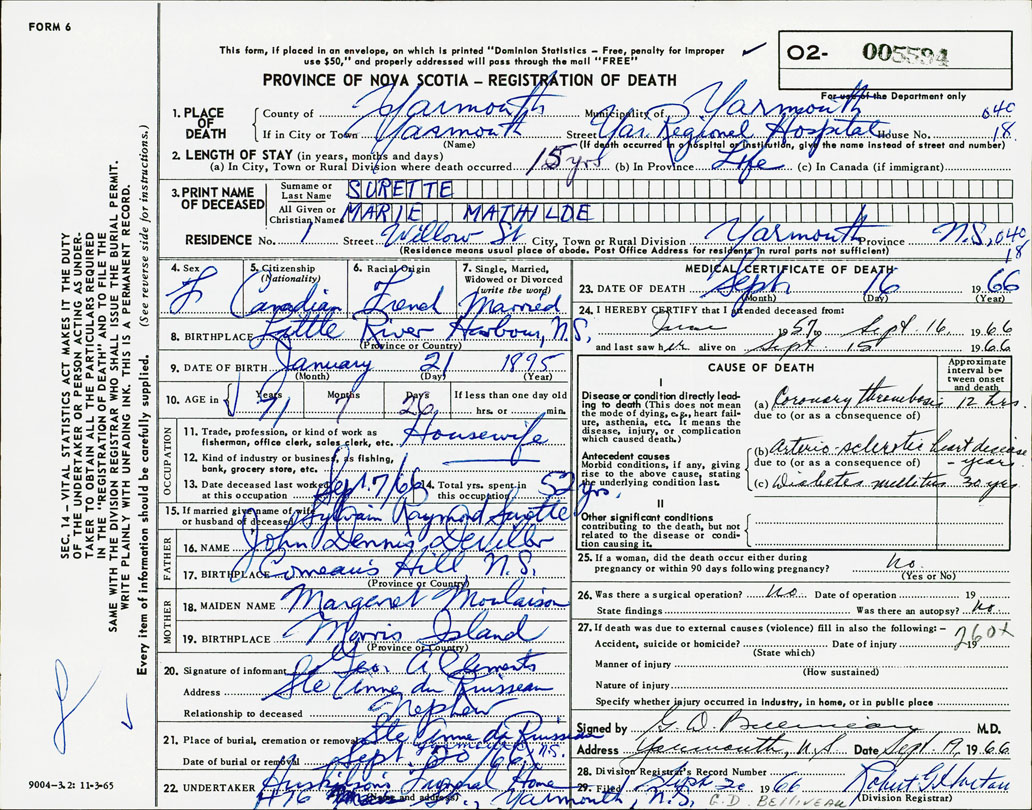 FORM 6
This form, if placed in an envelope, on which is printed "Dominion Statistics – Free, penalty for improper
use $50," and properly addressed will pass through the mail "FREE"
O2- 005594
PROVINCE OF NOVA SCOTIA – REGISTRATION OF DEATH
For use of the Department only
1. PLACE OF DEATH
County of Yarmouth Municipality of Yarmouth 040
If in City or Town Yarmouth Street Yar. Regional Hospital House No. 18
(Name) (If death occurred in a hospital or institution, give the name instead of street and number)
2. LENGTH OF STAY (in years, months and days)
(a) In City, Town or Rural Division where death occurred 15 yrs (b) In Province Life (c) In Canada (if immigrant)
3. PRINT NAME OF DECEASED
Surname or Last Name SURETTE
All Given or Christian Names MARIE MATHILDE
RESIDENCE No. 1 Street Willow St City, Town or Rural Division Yarmouth Province N.S. 040
(Residence means usual place of abode. Post Office Address for residents in rural parts not sufficient) 18
4. Sex F
5. Citizenship (Nationality) Canadian
6. Racial Origin French
7. Single, Married, Widowed or Divorced (write the word) Married
8. BIRTHPLACE Little River Harbour, N.S.
(Province or Country)
9. DATE OF BIRTH January 21 1895
(Month) (Day) (Year)
10. AGE in Years Months Days If less than one day old
71 7 26 hrs. or min.
OCCUPATION
11. Trade, profession, or kind of work as fisherman, office clerk, sales clerk, etc. Housewife
12. Kind of industry or business, as fishing, bank, grocery store, etc.
13. Date deceased last worked at this occupation Sept. 7/66 14. Total yrs. spent in this occupation 52 yrs.
15. If married give name of wife or husband of deceased Sylvain Raymond Surette
FATHER
16. NAME John Dennis
17. BIRTHPLACE Comeau's Hill N.S.
(Province or Country)
MOTHER
18. MAIDEN NAME Margaret Moulaison
19. BIRTHPLACE Morris Island
(Province or Country)
20. Signature of informant Geo. A Clements
Address Ste Anne du Ruisseau
Relationship to deceased Nephew
21. Place of burial, cremation or removal Ste Anne du Ruisseau
N.S.
Date of burial or removal Sept. 20/66
22. UNDERTAKER Funeral Home
(Name and address) Yarmouth, N.S.
MEDICAL CERTIFICATE OF DEATH
23. DATE OF DEATH Sept. 16 1966
(Month) (Day) (Year)
24. I HEREBY CERTIFY that I attended deceased from:
June 1957 to Sept 16. 1966
and last saw her alive on Sept. 15 1966
CAUSE OF DEATH
Approximate interval between onset and death
I
Disease or condition directly leading to death (This does not mean the mode of dying, e.g., heart failure, asthenia, etc. It means the disease, injury, or complication which caused death.)
(a) Coronary thrombosis 12 hrs.
due to (or as a consequence of)
Antecedent causes
Morbid conditions, if any, giving rise to the above cause, stating the underlying condition last.
(b) Arterio-sclerotic heart disease
due to (or as a consequence of) - years
(c) Diabetes mellitus 30 yrs
II
Other significant conditions
contributing to the death, but not related to the disease or condition causing it.
25. If a woman, did the death occur either during
pregnancy or within 90 days following pregnancy? No.
(Yes or No)
26. Was there a surgical operation? No. Date of operation 19
State findings Was there an autopsy? No.
27. If death was due to external causes (violence) fill in also the following: –
Accident, suicide or homicide? Date of injury 19
260X
(State which)
Manner of injury
(How sustained)
Nature of injury
Specify whether injury occurred in Industry, in home, or in public place
Signed by M.D.
Address Yarmouth, N.S. Date Sept. 19, 1966
28. Division Registrar's Record Number
29. Filed Sept 20 1966
(Division Registrar)
G.D. BELLIVEAU
SEC. 14 – VITAL STATISTICS ACT MAKES IT THE DUTY
OF THE UNDERTAKER OR PERSON ACTING AS UNDER-
TAKER TO OBTAIN ALL THE PARTICULARS REQUIRED
IN THE "REGISTRATION OF DEATH" AND TO FILE THE
SAME WITH THE DIVISION REGISTRAR WHO SHALL ISSUE THE BURIAL PERMIT.
WRITE PLAINLY WITH UNFADING INK. THIS IS A PERMANENT RECORD.
Every item of information should be carefully supplied. (See reverse side for instructions.)
9004–3.21 11-3-65